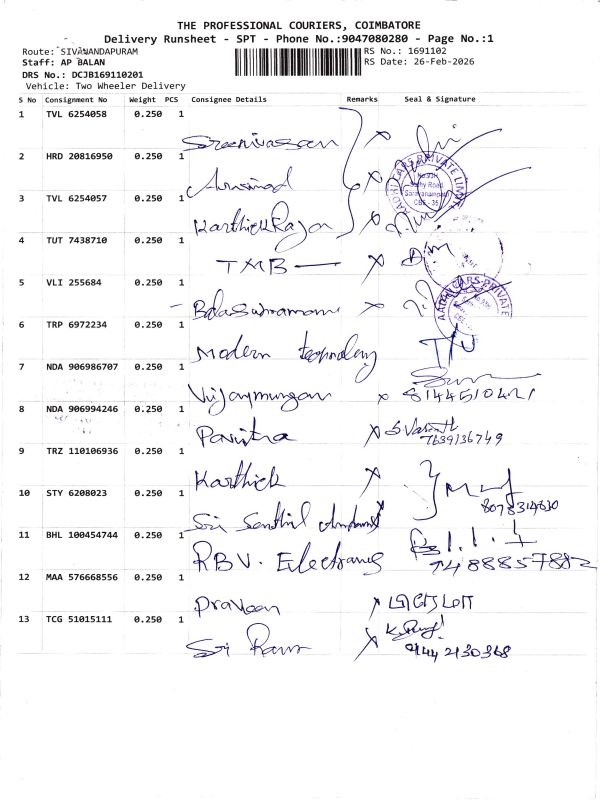 THE PROFESSIONAL COURIERS, COIMBATORE
Delivery Runsheet - SPT - Phone No.:9047080280 - Page No.:1
Route: SIVANANDAPURAM RS No.: 1691102
Staff: AP BALAN RS Date: 26-Feb-2026
DRS No.: DCJB169110201
Vehicle: Two Wheeler Delivery
S No Consignment No Weight PCS Consignee Details Remarks Seal & Signature
1 TVL 6254058 0.250 1
Sreenivassan
2 HRD 20816950 0.250 1
Arvind
3 TVL 6254057 0.250 1
Karthick Raja
4 TUT 7438710 0.250 1
TMB
5 VLI 255684 0.250 1
Balasubramani
6 TRP 6972234 0.250 1
Modern technology
7 NDA 906986707 0.250 1
Vijaymurugan 8144510421
8 NDA 906994246 0.250 1
Pavitra 7639136749
9 TRZ 110106936 0.250 1
Karthick
10 STY 6208023 0.250 1
Sri Senthil
11 BHL 100454744 0.250 1
RBV. Electranics
12 MAA 576668556 0.250 1
Praveen
13 TCG 51015111 0.250 1
Sri Ram 9442130368